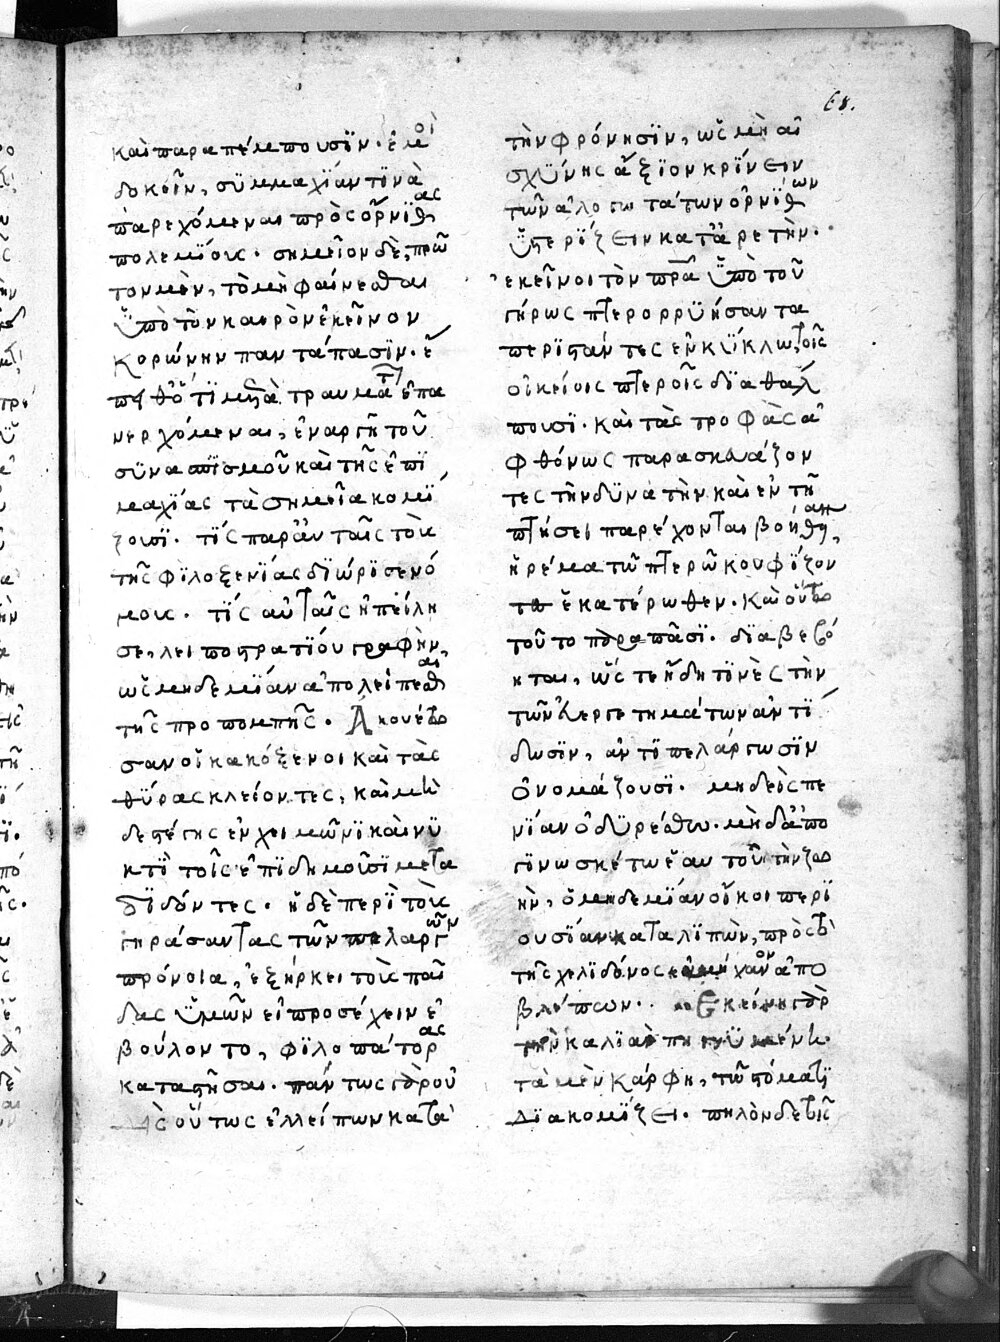 καὶ παραπέμπουσϊν· ἐμοὶ
δοκεῖν, σϋμμαχΐαν τινὰ
παρεχόμεναι πρὸς ὄρνϊθας
πολεμΐους· σημεῖον δὲ, πρῶ
τον μὲν, τὸ μὴ φαίνεσθαι
ϋπὸ τὸν καιρὸν ἐκεῖνον
κορώνην παντάπασϊν· ἔ
πειθ ὅτϊ μετὰ τραυμάτων ἐπα
νερχόμεναι, ἐναργῆ τοῦ
σϋνασπϊσμοῦ καὶ τῆς ἐπϊ
μαχΐας τὰ σημεῖα κομΐ
ζουσϊ· τΐς παρ' ἀυταῖς τοὺς
τῆς φϊλοξενΐας διώρϊσε νό
μους· τΐς αὐταῖς ἠπείλη
σε, λειποστρατΐου γραφὴν,
ὡς μηδεμΐαν ἀπολείπεσθαι
τῆς προπομπῆς· Ἀκουέτω
σαν οἱ κακόξενοι καὶ τὰς
θϋρας κλείοντες, καὶ μὴ
δὲ στέγης ἐν χειμῶνϊ καὶ νϋ
κτϊ τοῖς ἐπϊδημοῦσϊ μετα
δϊδόντες· ἡ δὲ περὶ τοὺς
γηράσαντας τῶν πελαργῶν
πρόνοια, ἐξήρκει τοὺς παῖ
δας ϋμῶν εἰ προσέχειν ἐ
βούλοντο, φϊλοπάτορας
καταστῆσαι· πάντως γὰρ οὐ
δεὶς οὕτως ἐλλείπων κατὰ
τὴν φρόνησϊν, ὡς μὴ αἰ
σχΰνης ἄξϊον κρΐνειν
τῶν ἀλογωτάτων ὀρνΐθων
ϋστερΐζειν κατ' ἀρετὴν·
ἐκεῖνοι τὸν πρα ϋπὸ τοῦ
γήρως πτερορρϋήσαντα
περιστάντες ἐν κΰκλω, τοῖς
οἰκείοις πτεροῖς δϊαθάλ
πουσι· καὶ τὰς τροφὰς ἀ
φθόνως παρασκευάζον
τες τὴν δϋνατὴν καὶ ἐν τῆ
πτήσει παρέχονται βοήθειαν,
ἠρέμα τῶ πτερῶ κουφΐζον
τες ἑκατέρωθεν· καὶ οὕτω
τοῦτο παρὰ πᾶσϊ· δϊαβεβό
ηται, ὥς τε ἤδη τϊνὲς τὴν
τῶν εὐεργετημάτων ἀντΐ
δωσϊν, ἀντϊπελάργωσϊν
ὀνομάζουσι· μηδεὶς πε
νΐαν ὀδϋρέσθω· μὴ δ' ἀπο
γϊνωσκέτω ἑαυτοῦ τὴν ζω
ὴν, ὁ μηδεμΐαν οἴκοι περϊ
ουσΐαν καταλϊπὼν, πρὸς τὸ
τῆς χελϊδόνος εὐμήχανον ἀπο
βλέπων· Ἐκείνη γὰρ
τὴν καλϊὰν πηγνϋμένη
τὰ μὲν κάρφη, τῶ στόματϊ
δϊακομΐζει· πηλὸν δὲ τοῖς